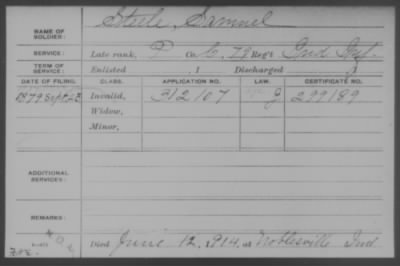 Steele, Samuel
NAME OF SOLDIER:
SERVICE: Late rank, P Co. C, 79 Reg't Ind Inf.
TERM OF SERVICE: Enlisted , 1 Discharged , 1
DATE OF FILING. CLASS. APPLICATION NO. LAW. CERTIFICATE NO.
1879 Sept 22 Invalid, 312107 G 299189
Widow,
Minor,
ADDITIONAL SERVICES:
REMARKS:
Died June 12, 1914, at Noblesville Ind